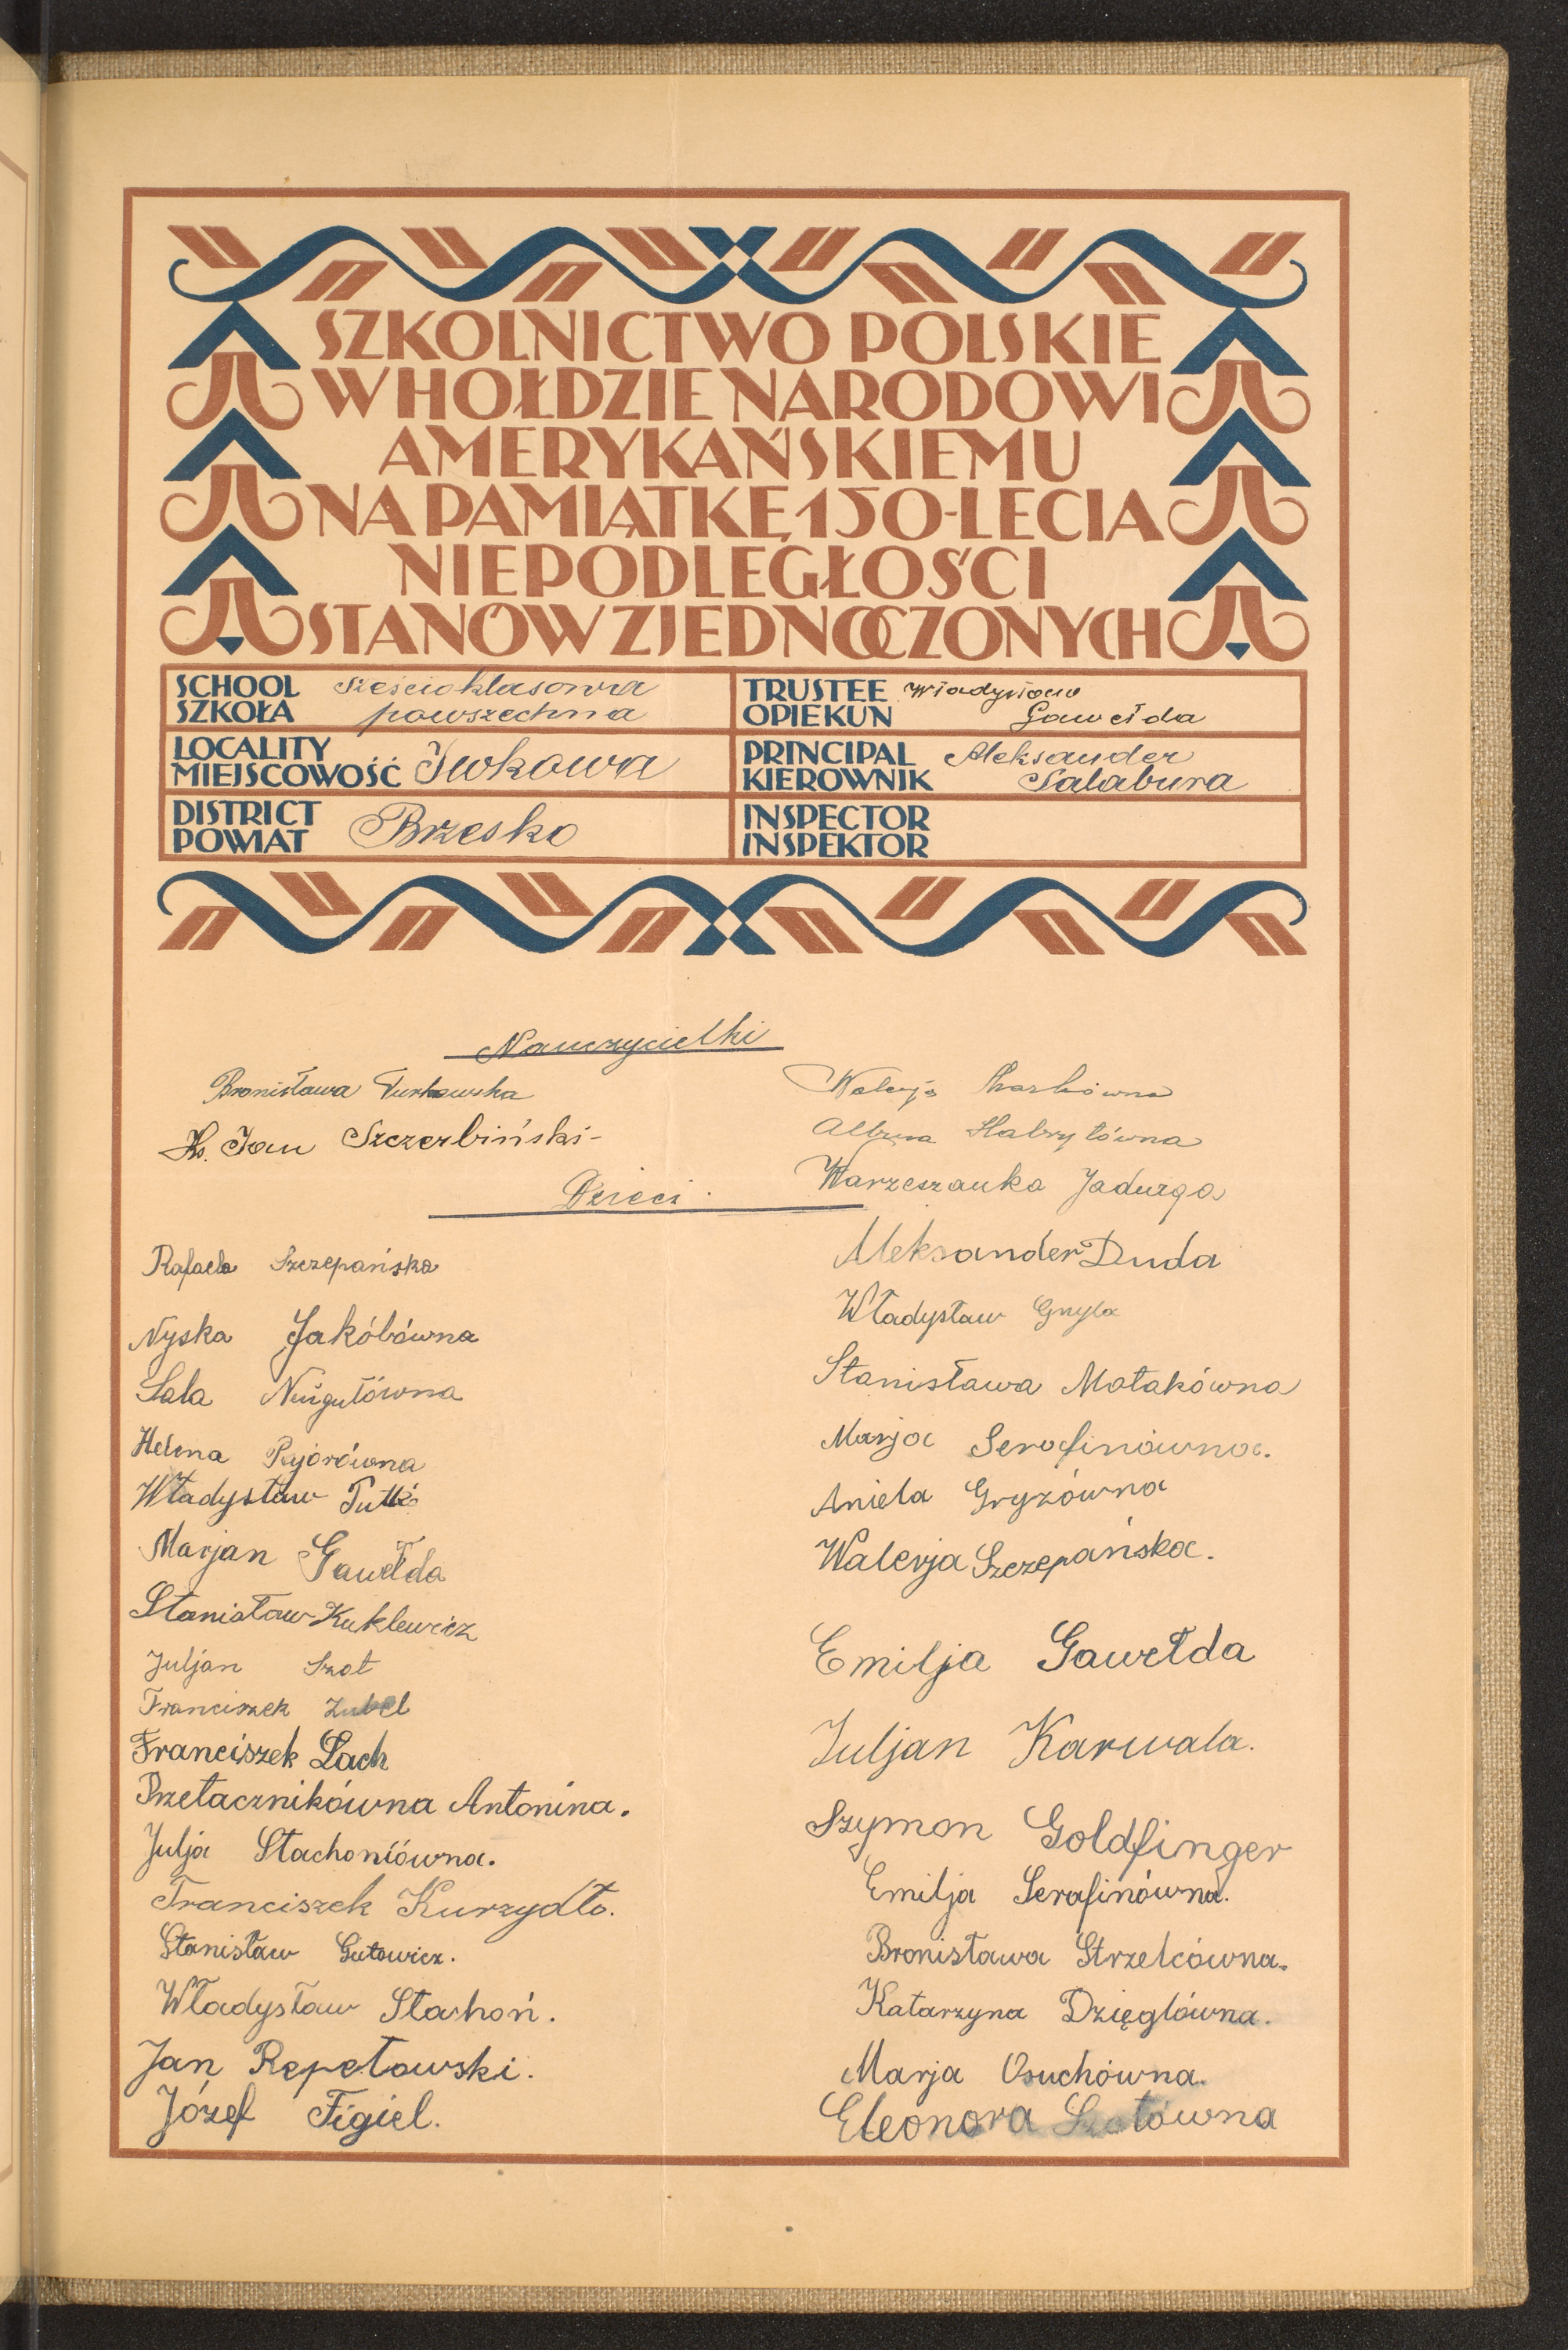 SZKOLNICTWO POLSKIE
W HOŁDZIE NARODOWI
AMERYKAŃSKIEMU
NA PAMIĄTKĘ 150-LECIA
NIEPODLEGŁOŚCI
STANÓW ZJEDNOCZONYCH
SCHOOL
SZKOŁA
sześcioklasowa
powszechna
TRUSTEE
OPIEKUN
Władysław
Gawełda
LOCALITY
MIEJSCOWOŚĆ
Iwkowa
PRINCIPAL
KIEROWNIK
Aleksander
Salabura
DISTRICT
POWIAT
Brzesko
INSPECTOR
INSPEKTOR
Nauczycielki
Bronisława Turkowska
Ks. Jan Szczerbiński
Walerja
Albina Habryłówna
Warzeszanka Jadwiga
Dzieci.
Rafaela Szczepańska
Nyska Jakóbówna
Sala
Helena Pyjorówna
Władysław
Marjan Gawełda
Stanisław Kuklewicz
Juljan Szot
Franciszek Zubel
Franciszek Lach
Przetacznikówna Antonina.
Julja Stachoniówna.
Franciszek Kurzydło.
Stanisław Gutowicz.
Władysław Stachoń.
Jan Repetowski.
Józef Figiel.
Aleksander Duda
Władysław Gnyla
Stanisława Motakówna
Marja Serafinówna.
Aniela Gryzówna
Walerja Szczepańska.
Emilja Gawełda
Juljan Karwala.
Szymon Goldfinger
Emilja Serafinówna.
Bronisława Strzelcówna.
Katarzyna Dzięglówna.
Marja Osuchówna.
Eleonora Szotówna